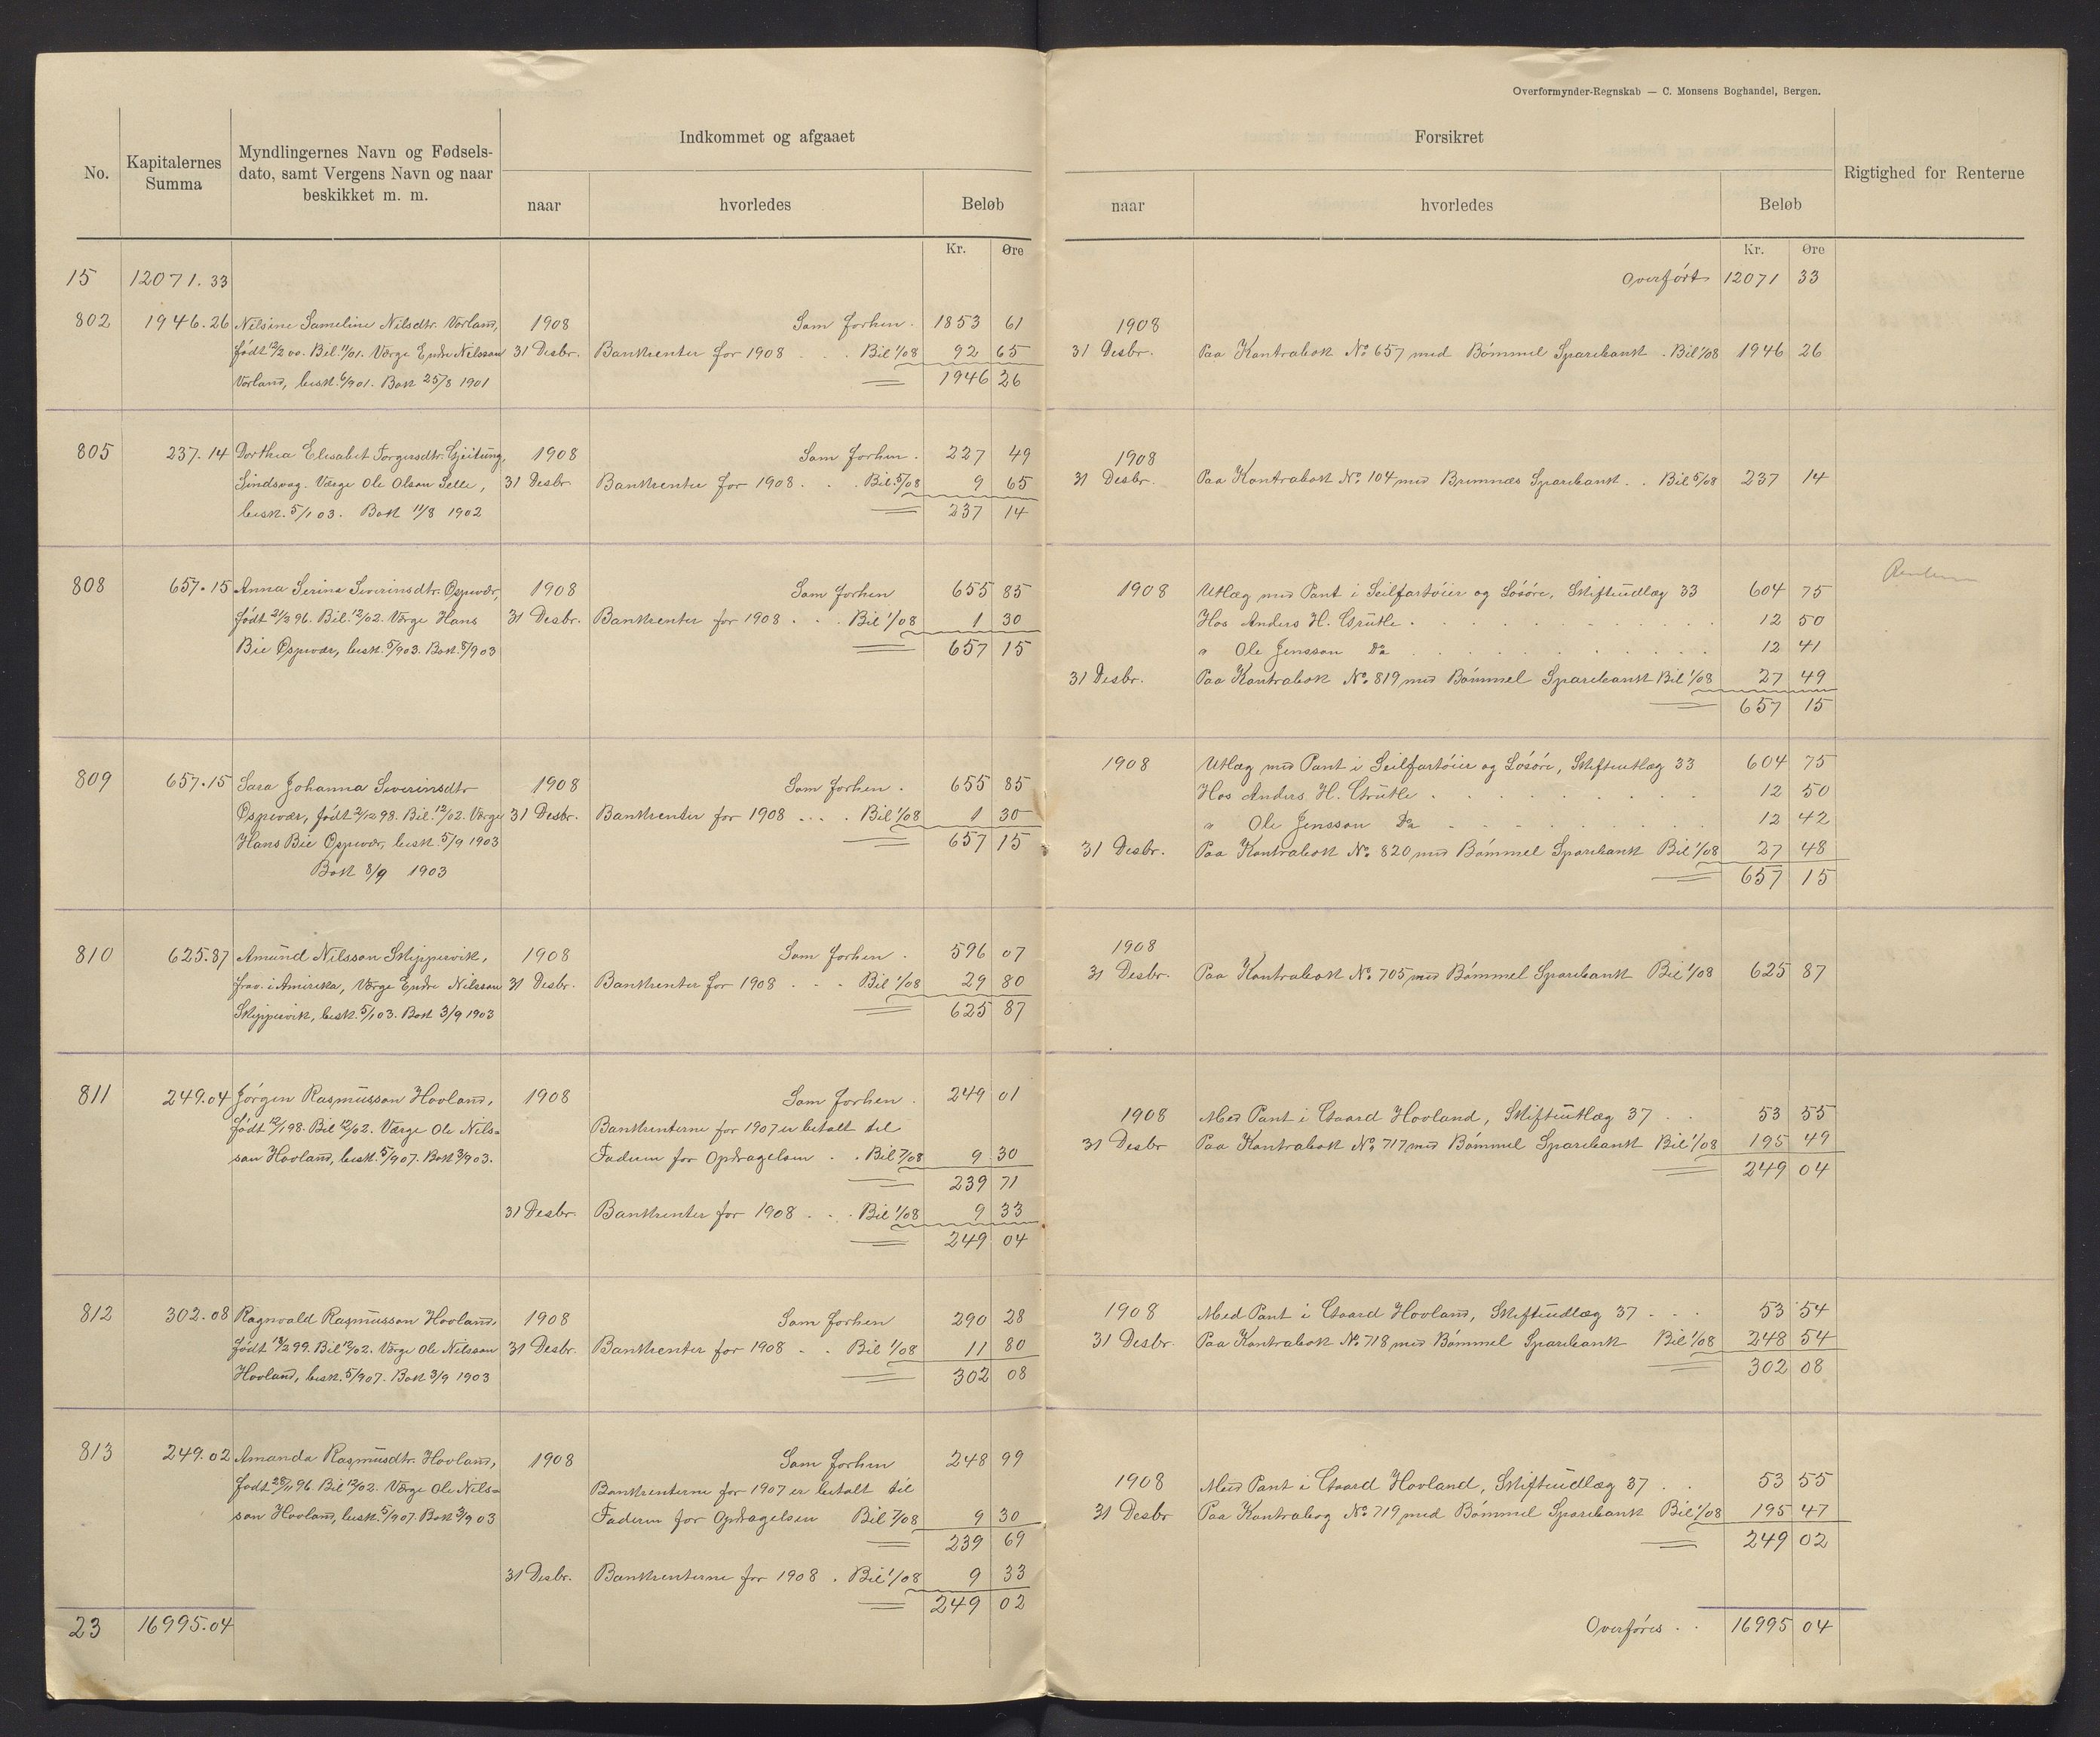 Overformynder-Regnskab — C. Monsens Boghandel, Bergen.
No.
Kapitalernes Summa
Myndlingernes Navn og Fødsels-
dato, samt Vergens Navn og naar
beskikket m. m.
Indkommet og afgaaet
naar
hvorledes
Beløb
Kr. Øre
Forsikret
naar
hvorledes
Beløb
Kr. Øre
Rigtighed for Renterne
15 12071.33
802 1946.26 Nilsine Sameline Nilsdtr. Vorland, 1908 Som forhen . 1853 61
født 12/2 00. Bil. 11/01. Værge Endre Nilsson 31 Desbr. Bankrenter for 1908 . . . Bil 1/08 92 65
Vorland, besk. 6/9 01. Bok 25/8 1901 1946 26
805 237.14 Dorthea Elisabet Torgersdtr. Gjeitung, 1908 Som forhen . 227 49
Sindsvag. Værge Ole Olson Selle, 31 Desbr Bankrenter for 1908 . . . Bil 5/08 9 65
besk. 5/1 03. Bok 11/8 1902 237 14
808 657.15 Anna Serina Severinsdtr. Ospevær, 1908 Som forhen 655 85
født 21/3 96. Bil. 12/02. Værge Hans 31 Desbr. Bankrenter for 1908 . . . Bil 1/08 1 30
Bie Ospevær, besk. 5/9 03. Bok. 8/9 03 657 15
809 657.15 Sara Johanna Severinsdtr 1908 Som forhen . 655 85
Ospevær, født 2/12 98. Bil. 12/02. Værge 31 Desbr. Bankrenter for 1908 . . . Bil 1/08 1 30
Hans Bie Ospevær, besk. 5/9 1903 657 15
Bok 8/9 1903
810 625.87 Amund Nilsson Skippervik, 1908 Som forhen . 596 07
frav. i Amirika, Værge Endre Nilsson 31 Desbr. Bankrenter for 1908 . . . Bil 1/08 29 80
Skippervik, besk. 5/1 03. Bok 3/9 1903 625 87
811 249.04 Jörgen Rasmusson Hovland, 1908 Som forhen . 249 01
født 12/1 98. Bil 12/02. Værge Ole Nils= Bankrenterne for 1907 er betalt til
son Hovland, besk. 5/9 07. Bok 3/9 03. Faderen for Opdragelsen . . Bil 7/08 9 30
239 71
31 Desbr. Bankrenter for 1908 . . . Bil 1/08 9 33
249 04
812 302.08 Ragnvald Rasmusson Hovland, 1908 Som forhen 290 28
født 18/2 99. Bil 12/02. Værge Ole Nilsson 31 Desbr. Bankrenter for 1908 . . Bil 1/08 11 80
Hovland, besk. 5/9 07. Bok 3/9 1903 302 08
813 249.02 Amanda Rasmusdtr. Hovland, 1908 Som forhen 248 99
født 28/11 96. Bil 12/02. Værge Ole Nils= Bankrenterne for 1907 er betalt til
son Hovland, besk. 5/9 07. Bok 3/9 03 Faderen for Opdragelsen Bil 7/08 9 30
239 69
31 Desbr. Bankrenterne for 1908 . Bil 1/08 9 33
249 02
23 16995.04
Overført 12071 33
1908
31 Desbr. Paa Kontrabok No. 657 med Bömmel Sparebank . Bil 1/08 1946 26
1908
31 Desbr. Paa Kontrabok No. 104 med Bremnæs Sparebank . . Bil 5/08 237 14
Renterne
1908 Utlæg med Pant i Seilfartöier og Lösöre, Skifteudlæg 33 604 75
Hos Anders H. Grutle . . . 12 50
" Ole Jensson Do . . . 12 41
31 Desbr. Paa Kontrabok No. 819 med Bömmel Sparebank Bil 1/08 27 49
657 15
1908 Utlæg med Pant i Seilfartöier og Lösöre, Skifteutlæg 33 604 75
Hos Anders H. Grutle . . . 12 50
" Ole Jensson Do . . . 12 42
31 Desbr. Paa Kontrabok No. 820 med Bömmel Sparebank Bil 1/08 27 48
657 15
1908
31 Desbr. Paa Kontrabok No. 705 med Bömmel Sparebank Bil 1/08 625 87
1908 Med Pant i Gaard Hovland, Skifteutlæg 37 . . 53 55
31 Desbr Paa Kontrabok No. 717 med Bömmel Sparebank Bil 1/08 195 49
249 04
1908 Med Pant i Gaard Hovland, Skifteudlæg 37 . . . 53 54
31 Desbr. Paa Kontrabok No. 718 med Bömmel Sparebank Bil 1/08 248 54
302 08
1908 Med Pant i Gaard Hovland, Skifteudlæg 37 . . 53 55
31 Desbr Paa Kontrabog No. 719 med Bömmel Sparebank Bil 1/08 195 47
249 02
Overføres . . 16995 04